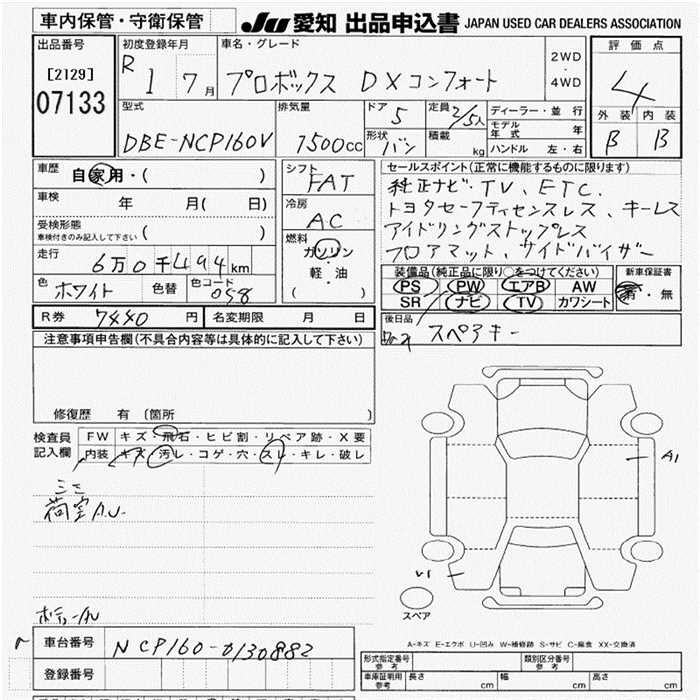 車内保管・守衛保管
JU 愛知 出品申込書 JAPAN USED CAR DEALERS ASSOCIATION
出品番号
[2129]
07133
初度登録年月
R 1 7月
車名・グレード
プロボックス DXコンフォート
2WD
・
4WD
評価点
4
外装 内装
B B
型式
DBE-NCP160V
排気量
1500cc
ドア 5
定員 2/5人
形状 バン
積載 kg
ディーラー・並行
モデル年式 年
ハンドル 左・右
車歴
自家用・( )
車検
年 月( 日)
受検形態
車検付きのみ記入して下さい ( )
走行
6万0千494km
色 ホワイト 色替 色コード 058
シフト
FAT
冷房
AC
燃料
ガソリン
・
軽・油
( )
セールスポイント(正常に機能するものに限ります)
純正ナビ・TV、ETC、
トヨタセーフティセンスレス、キーレス
アイドリングストップレス
フロアマット、サイドバイザー
装備品(純正品に限り○をつけてください)
PS PW エアB AW
SR ナビ TV カワシート
新車保証書
有・無
後日品
スペアキー
R券 7440円 名変期限 月 日
注意事項申告欄(不具合内容等は具体的に記入して下さい)
修復歴 有 〔箇所 〕
検査員
記入欄
FW キズ・飛石・ヒビ割・リペア跡・X要
内装 キズ・汚レ・コゲ・穴・スレ・キレ・破レ
荷室A,U
A1
U1
スペア
A-キズ E-エクボ U-凹み W-補修跡 S-サビ C-腐食 XX-交換済
車台番号 NCP160-0130882
登録番号
形式指定番号
参考
類別区分番号
参考
車庫証明用
参考
長さ cm 幅 cm 高さ cm